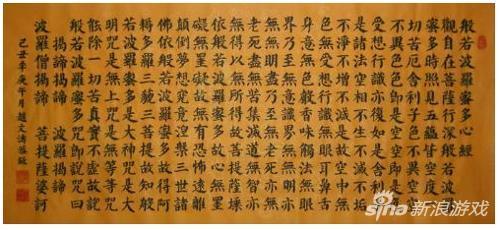 般若波羅蜜多心經
觀自在菩薩行深般若波羅
蜜多時照見五蘊皆空度一
切苦厄舍利子色不異空空
不異色色即是空空即是色
受想行識亦復如是舍利子
是諸法空相不生不滅不垢
不淨不增不減是故空中無
色無受想行識無眼耳鼻舌
身意無色聲香味觸法無眼
界乃至無意識界無無明亦
無無明盡乃至無老死亦無
老死盡無苦集滅道無智亦
無得以無所得故菩提薩埵
依般若波羅蜜多故心無罣
礙無罣礙故無有恐怖遠離
顛倒夢想究竟涅槃三世諸
佛依般若波羅蜜多故得阿
耨多羅三藐三菩提故知般
若波羅蜜多是大神咒是大
明咒是無上咒是無等等咒
能除一切苦真實不虛故說
般若波羅蜜多咒即說咒曰
揭諦揭諦 波羅揭諦
波羅僧揭諦 菩提薩婆訶
己丑年庚午月趙文
sina新浪游戏